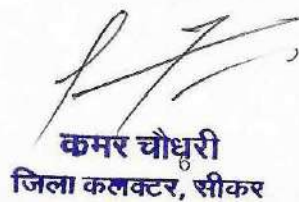 कमर चौधरी
6
जिला कलक्टर, सीकर